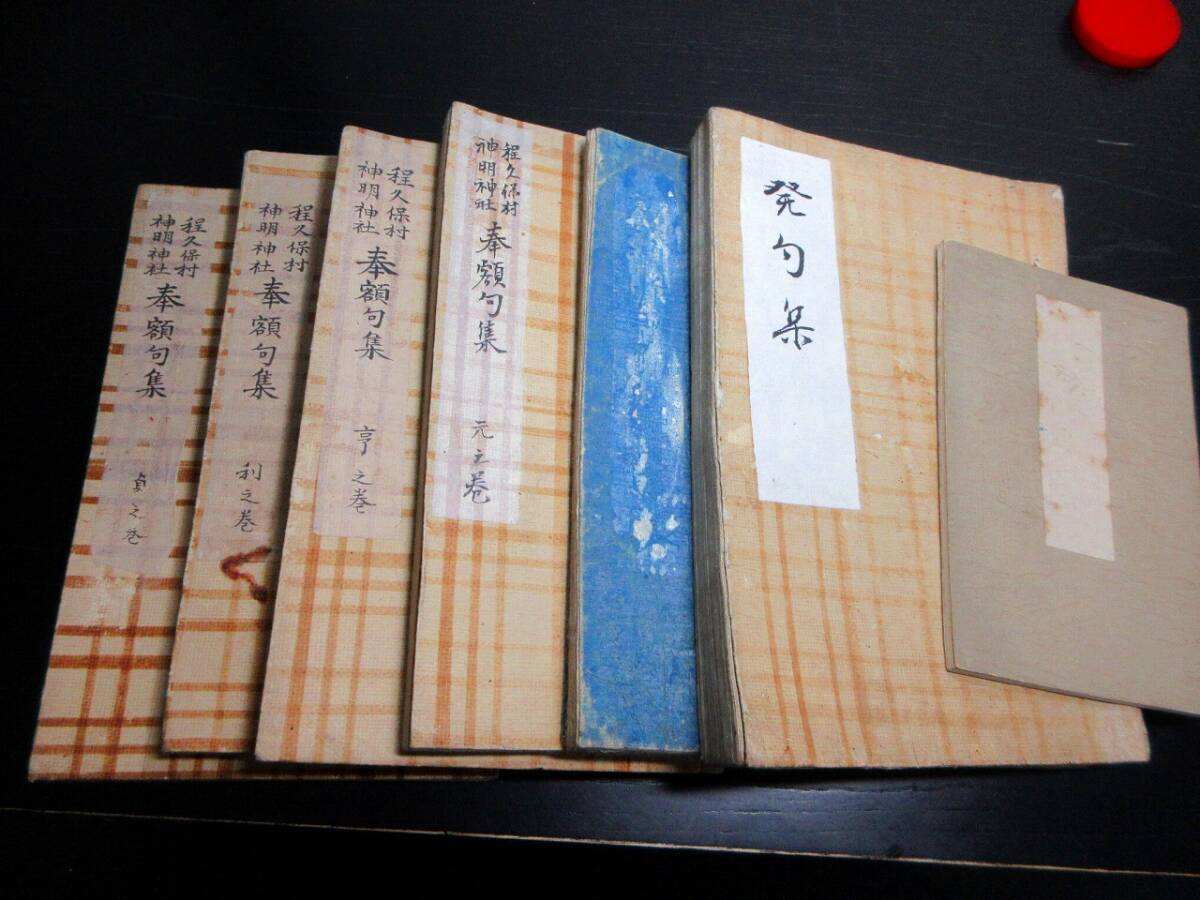 発句集
程久保村
神明神社
奉額句集
元之巻
程久保村
神明神社
奉額句集
亨之巻
程久保村
神明神社
奉額句集
利之巻
程久保村
神明神社
奉額句集
貞之巻